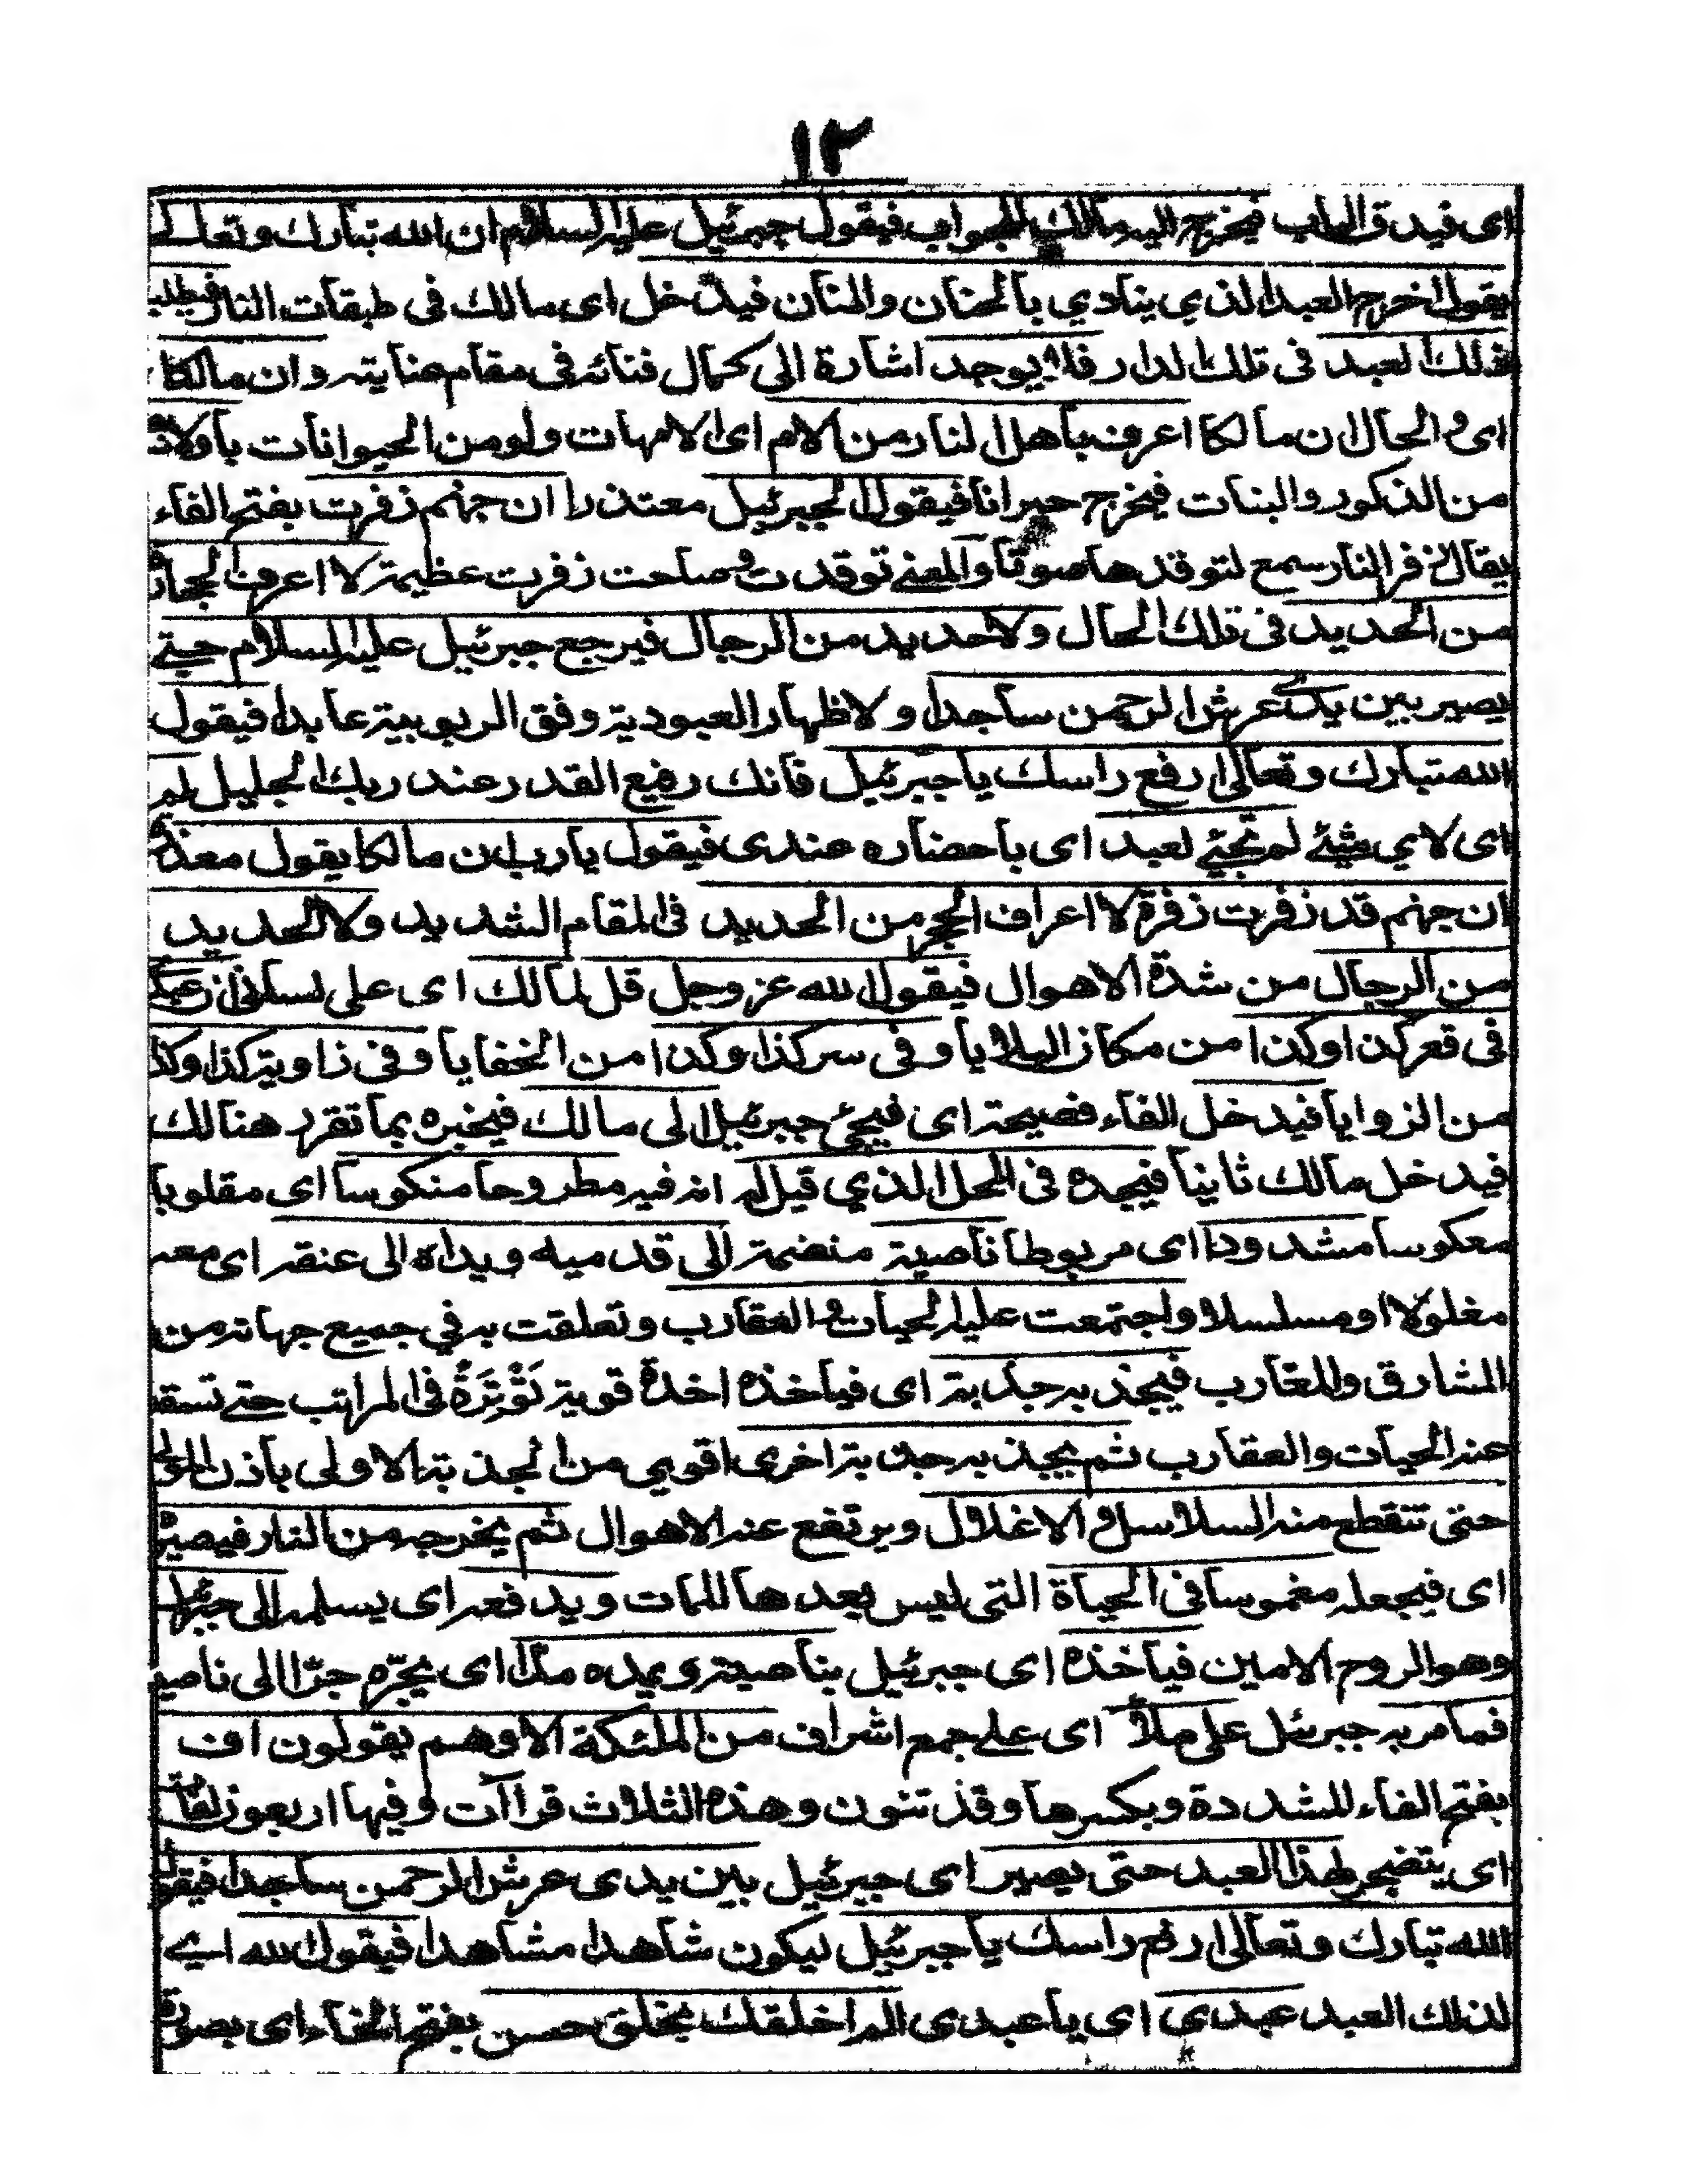 ١٢
اى فيدق الباب فيخرج اليه مالك الجواب فيقول جبرئيل عليه السلام ان الله تبارك وتعالى
يقول اخرج العبد الذي ينادي بالحنان والمنان فيدخل اى مالك فى طبقات النار فيطلب
ذلك العبد فى تلك الدار فلا يوجد اشارة الى كمال فنائه فى مقام عنايته وان مالكا
اى والحال ان مالكا اعرف باهل النار من الام اى الامهات ولو من الحيوانات باولاده
من الذكور والبنات فيخرج حيرانا فيقول لجبرئيل معتذرا ان جهنم زفرت بفتح الفاء
يقال زفر النار سمع لتوقدها صوتا والمعنے توقدت وصاحت زفرت عظيمة لا اعرف الحجارة
من الحديد فى تلك الحال ولا حديد من الرجال فيرجع جبرئيل عليه السلام حتے
يصير بين يدے عرش الرحمن ساجدا ولاظهار العبودية وفق الربوبية عابدا فيقول
الله تبارك وتعالى ارفع راسك يا جبرئيل فانك رفيع القدر عند ربك الجليل لم
اى لاي شيئے لم تجئے لعبد اى باحضاره عندى فيقول يا رب ان مالكا يقول معذرة
ان جهنم قد زفرت زفرة لا اعراف الحجر من الحديد فى المقام الشديد ولا الحديد
من الرجال من شدة الاهوال فيقول الله عز وجل قل لمالك اى على لسانى ان عبدى
فى قعر كذا وكذا من مكان البلايا وفى سر كذا وكذا من الخفايا وفى زاوية كذا وكذا
من الزوايا فيدخل الفاء فصيحة اى فيجئ جبرئيل الى مالك فيخبره بما تقرر هنالك
فيدخل مالك ثانيا فيجده فى المحل الذي قيل له انه فيه مطروحا منكوسا اى مقلوبا
معكوسا مشدودا اى مربوطا ناصية منضمة الى قدميه ويداه الى عنقه اى معه
مغلولا او مسلسلا واجتمعت عليه الحيات والعقارب وتعلقت به في جميع جهاته من
المشارق والمغارب فيجذبه جذبة اى فياخذه اخذة قوية تؤثرة فى المراتب حتے تسقط
عنه الحيات والعقارب ثم يجذبه جذبة اخرى اقوي من الجذبة الاولى باذن المولى
حتى تنقطع منه السلاسل والاغلال ويرتفع عنه الاهوال ثم يخرجه من النار فيصيره
اى فيجعله مغموسا فى الحياة التى ليس بعدها الممات ويدفعه اى يسلمه الى جبرئيل
وهو الروح الامين فياخذه اى جبرئيل بناصيته ويمده مدا اى يجرّه جرّا الى ناصيه
فما مر به جبرئيل على ملأ اى علے جمع اشراف من الملئكة الا وهم يقولون اف
بفتح الفاء المشددة وبكسرها وقد تنون وهذه الثلاث قراآت وفيها اربعون لغات
اى يتضجر لهذا العبد حتى يصير اى جبرئيل بين يدى عرش الرحمن ساجدا فيقول
الله تبارك وتعالى ارفع راسك يا جبرئيل ليكون شاهدا مشاهدا فيقول الله اے
لذلك العبد عبدي اى يا عبدى الم اخلقك بخلق حسن بفتح الخاء اى بصورة